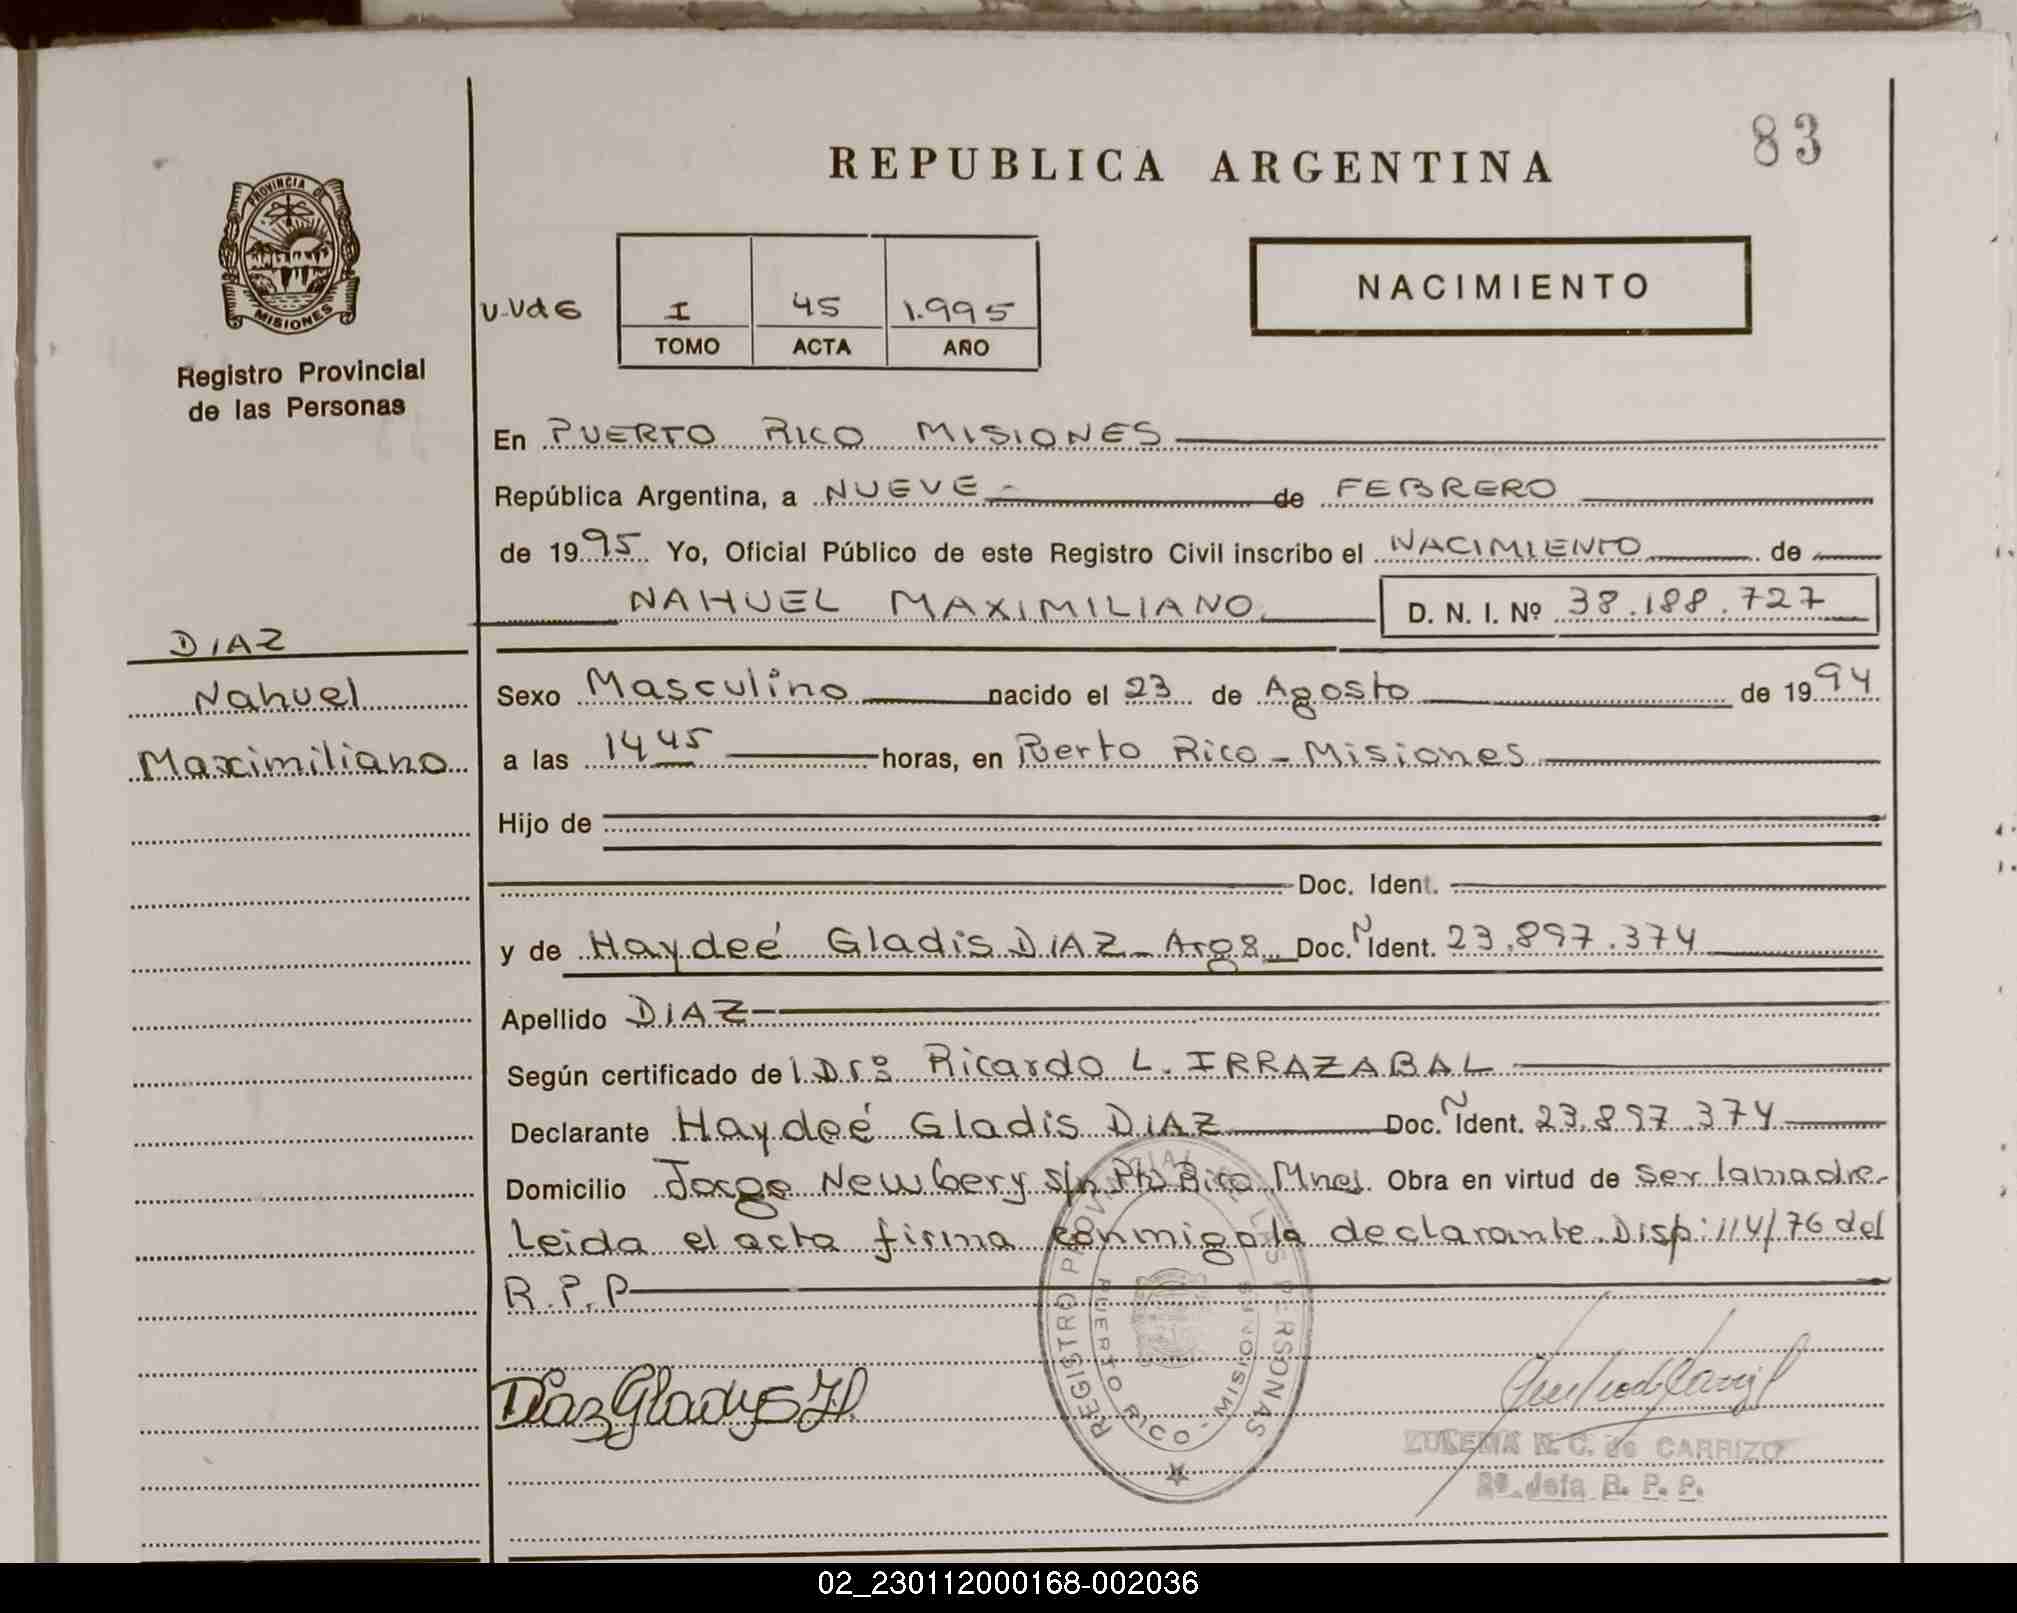 83
REPUBLICA ARGENTINA
PROVINCIA DE
MISIONES
NACIMIENTO
I 45 1.995
TOMO ACTA AÑO
Registro Provincial
de las Personas
En PUERTO RICO MISIONES
República Argentina, a NUEVE de FEBRERO
de 1995 Yo, Oficial Público de este Registro Civil inscribo el NACIMIENTO de
NAHUEL MAXIMILIANO D. N. I. Nº 38.188.727
DIAZ
Nahuel
Maximiliano
Sexo Masculino nacido el 23 de Agosto de 1994
a las 14 45 horas, en Puerto Rico - Misiones
Hijo de
Doc. Ident.
y de Haydeé Gladis DIAZ - Arg. Doc. N Ident. 23.897.374
Apellido DIAZ
Según certificado del Dr: Ricardo L. IRRAZABAL
Declarante Haydeé Gladis DIAZ Doc. N Ident. 23.897.374
Domicilio Jorge Newbery s/n Pto Rico Mnes. Obra en virtud de ser la madre.
Leida el acta firma conmigo la declarante. Disp: 114/76 del
R.P.P
REGISTRO PROVINCIAL DE LAS PERSONAS
PUERTO RICO - MISIONES
Diaz Gladys H.
ZULEMA R. C. de CARRIZO
2º Jefa R. P. P.
02_230112000168-002036